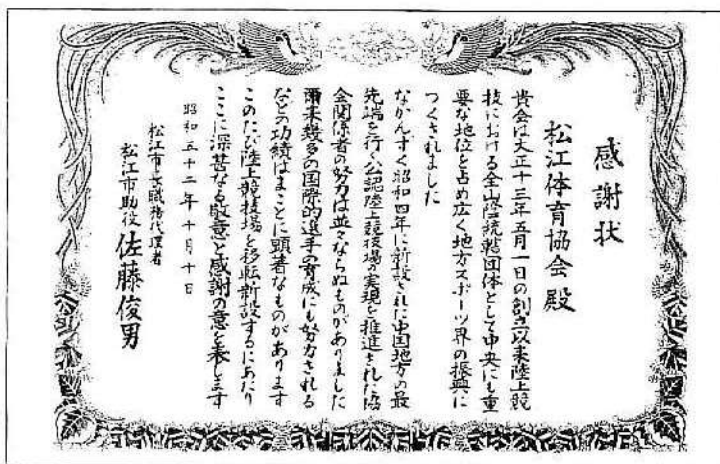 感謝状
松江体育協会殿
貴会は大正十三年五月一日の創立以来陸上競
技における全山陰統轄団体として中央にも重
要な地位を占め広く地方スポーツ界の振興に
つくされました
なかんずく昭和四年に新設された中国地方の最
先端を行く公認陸上競技場の実現を推進された協
会関係者の努力は並々ならぬものがありました
爾来幾多の国際的選手の育成にも努力される
などの功績はまことに顕著なものがあります
このたび陸上競技場を移転新設するにあたり
ここに深甚なる敬意と感謝の意を表します
昭和五十二年十月十日
松江市長職務代理者
松江市助役 佐藤俊男